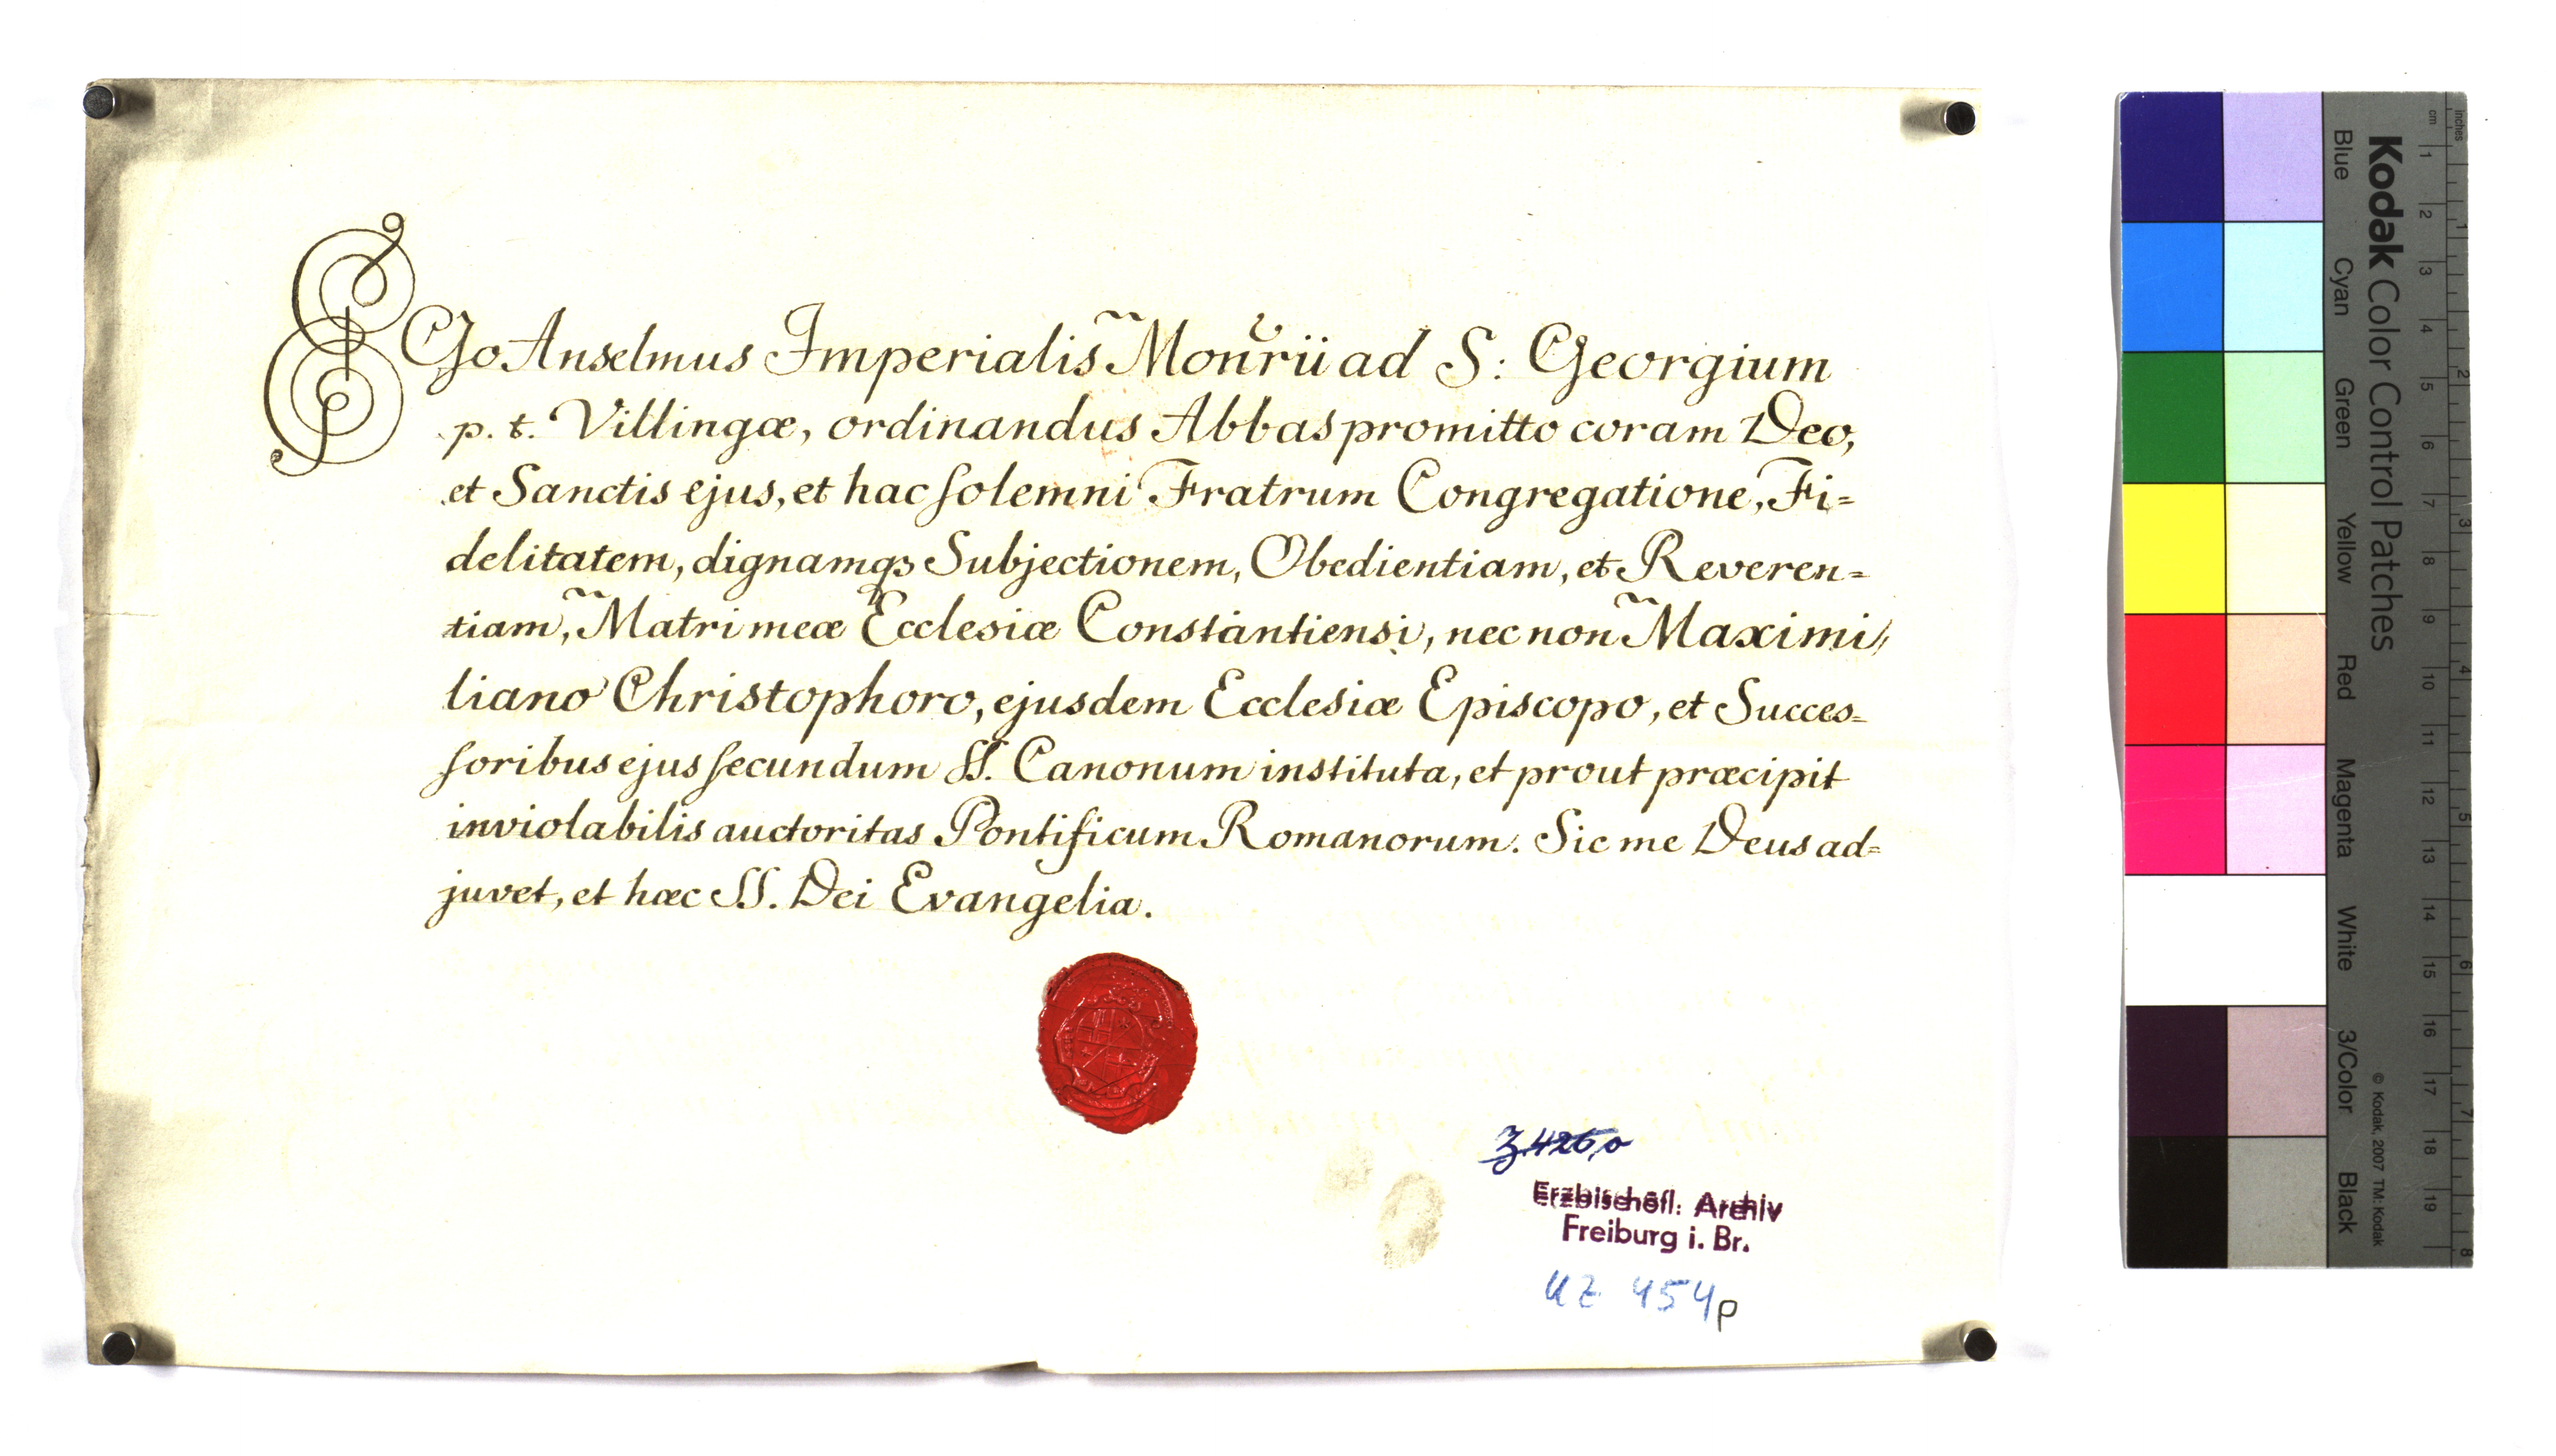 EGo Anselmus Imperialis Monrii ad S: Georgium
p. t. Villingæ, ordinandus Abbas promitto coram Deo,
et Sanctis ejus, et hac ſolemni Fratrum Congregatione, Fi=
delitatem, dignamqꝫ Subjectionem, Obedientiam, et Reveren=
tiam, Matri meæ Ecclesiæ Constantiensi, nec non Maximi,,
liano Christophoro, ejusdem Ecclesiæ Episcopo, et Succes=
ſoribus ejus ſecundum SS. Canonum instituta, et prout præcipit
inviolabilis auctoritas Pontificum Romanorum. Sic me Deus ad=
juvet, et hæc SS. Dei Evangelia.
Erzbischöfl. Archiv
Freiburg i. Br.
UZ 454p
Kodak Color Control Patches
Blue Cyan Green Yellow Red Magenta White 3/Color Black
© Kodak, 2007 TM: Kodak
cm 1 2 3 4 5 6 7 8 9 10 11 12 13 14 15 16 17 18 19
inches 1 2 3 4 5 6 7 8